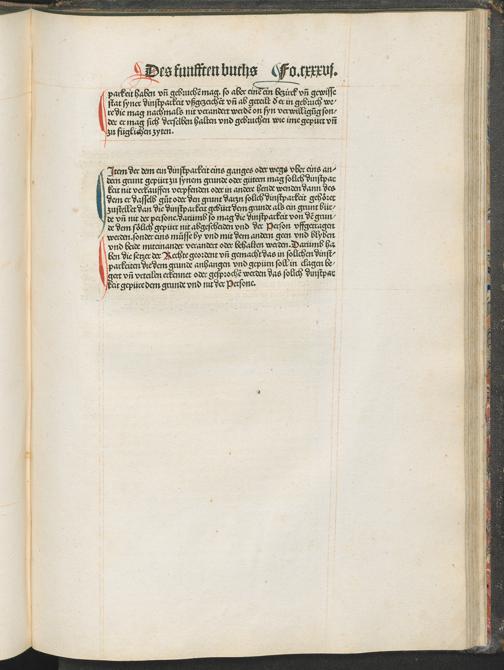 Des funfften buchs Fo.cxxxvi.
parkeit haben vñ gebruchẽ mag. so aber eine͂ ein bezirck vñ gewisse
stat syner dinstparkeit vßgezeichẽt vñ ab geteilt d͛er in gebruch we-
re die mag nachmals nit verandert werdẽ on syn verwilligũg son-
der er mag sich derselben halten vnd gebruchen wie ime gepürt vñ
zu füglichen zyten.
Item der dem ein dinstparkeit eins ganges oder wegs vber eins an-
dern grunt gepürt zu synem grunde oder gütern mag solich dinstpar
keit nit verkauffen verpfenden oder in andere hende wenden dann des
dem er dasselb güt oder den grunt dazu solich dinstparkeit gehöret
zustellet dan die dinstparkeit gebürt dem grunde als ein grunt
de vñ nit der persone. darumb so mag die dinstparkeit von dẽ grun-
de dem sölich gepürt nit abgescheiden vnd der Person vffgetragen
werden. sonder eins müsse by vnd mit dem andern geen vnd blyben
vnd beide miteinander verandert oder behalten werden. Darumb ha
ben die setzer der Rechte geordent vñ gemacht das in solichen dinst-
parkeiten die dem grunde anhangen vnd gepüren soll in clagen be-
gert vñ vrteiln erkennet oder gesprochẽ werden das solich dinstpar
keit gepürt dem grunde vnd nit der Persone.